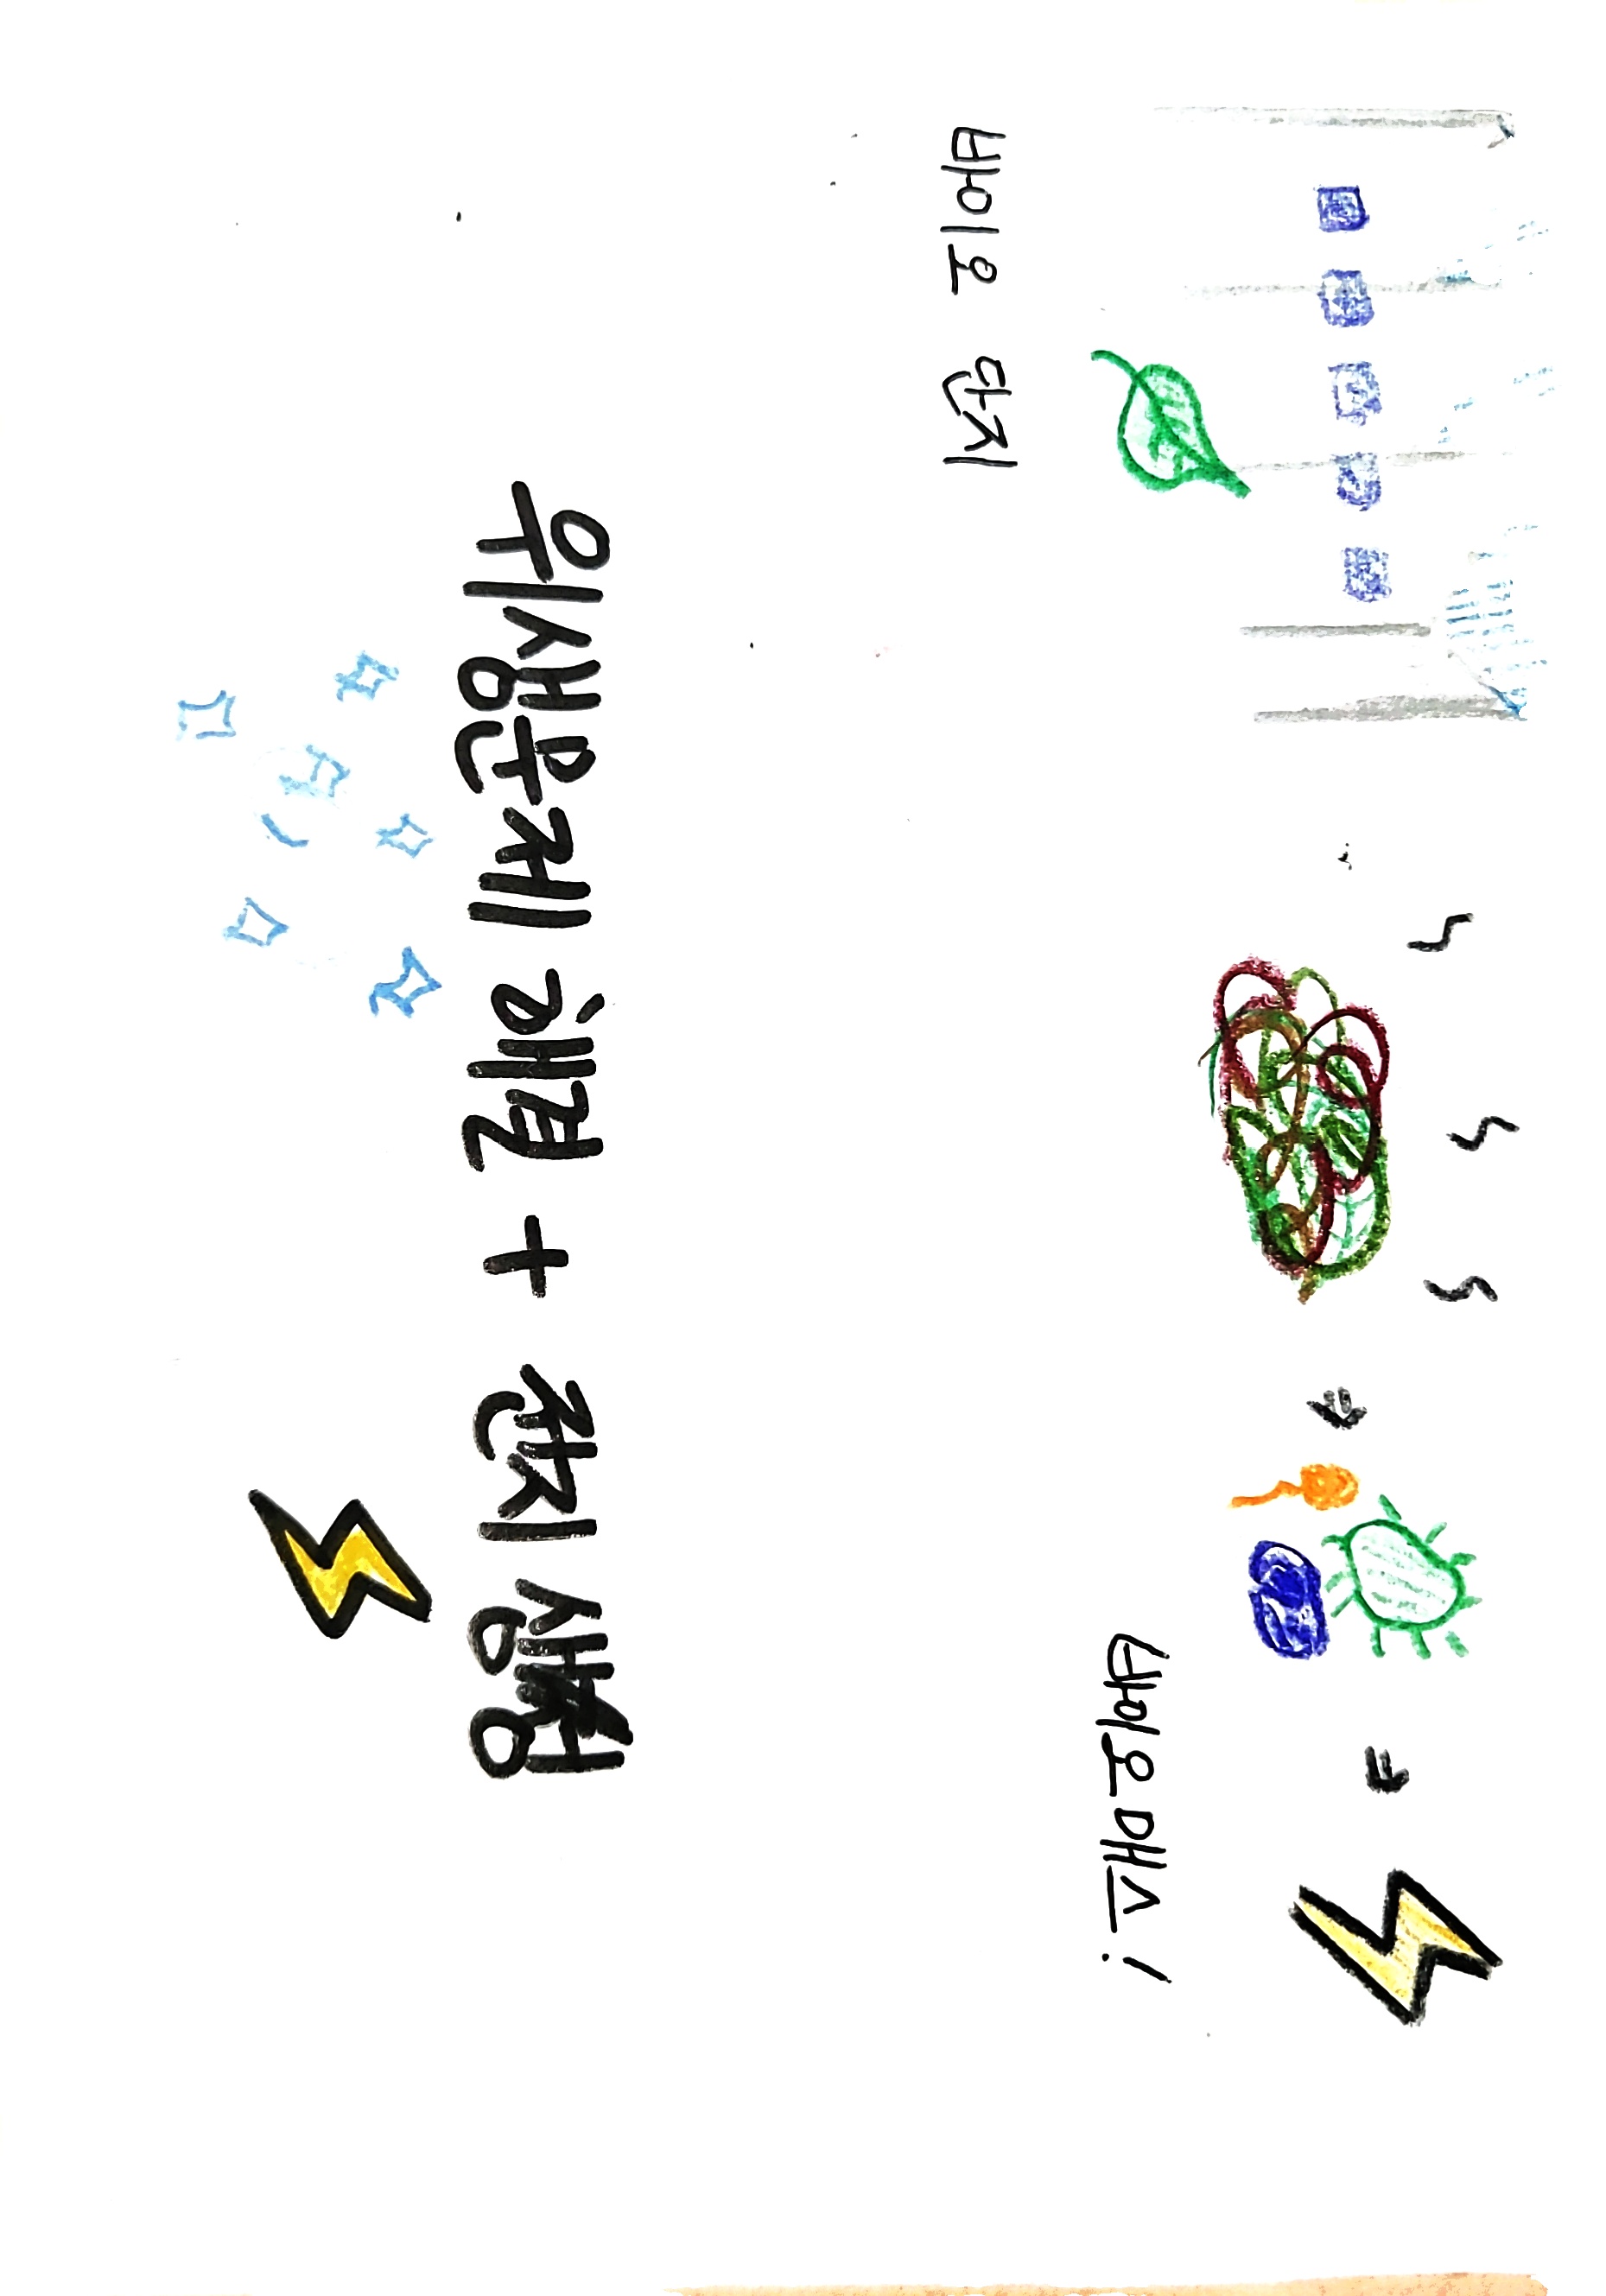 바이오 단지
바이오매스!
위생문제 해결 + 전지 생성